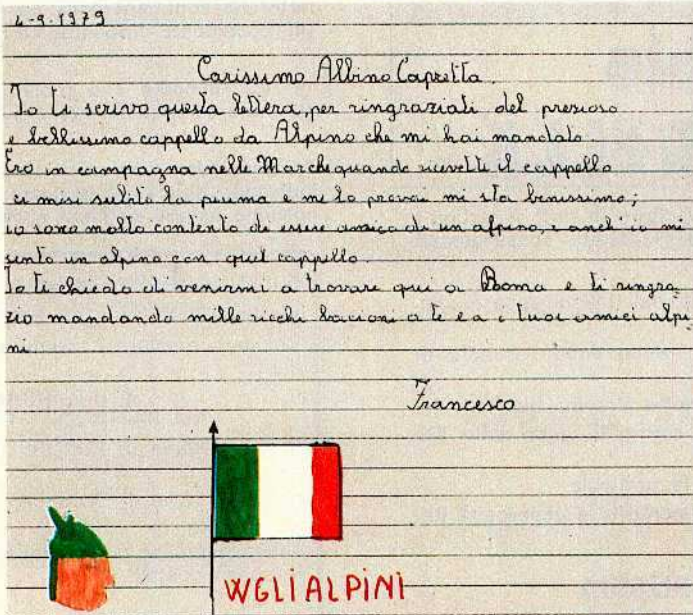 4-9-1979
Carissimo Albino Capretta.
Io ti scrivo questa lettera, per ringraziati del prezioso
e bellissimo cappello da Alpino che mi hai mandato.
Ero in campagna nelle Marche quando ricevetti il cappello
ci misi subito la piuma e me lo provai mi sta benissimo;
io sono molto contento di essere amico di un alpino, e anch'io mi
sento un alpino con quel cappello.
Io ti chiedo di venirmi a trovare qui a Roma e ti ringra-
zio mandando mille ricchi bacioni a te e a i tuoi amici alpi-
ni.
Francesco
W GLI ALPINI